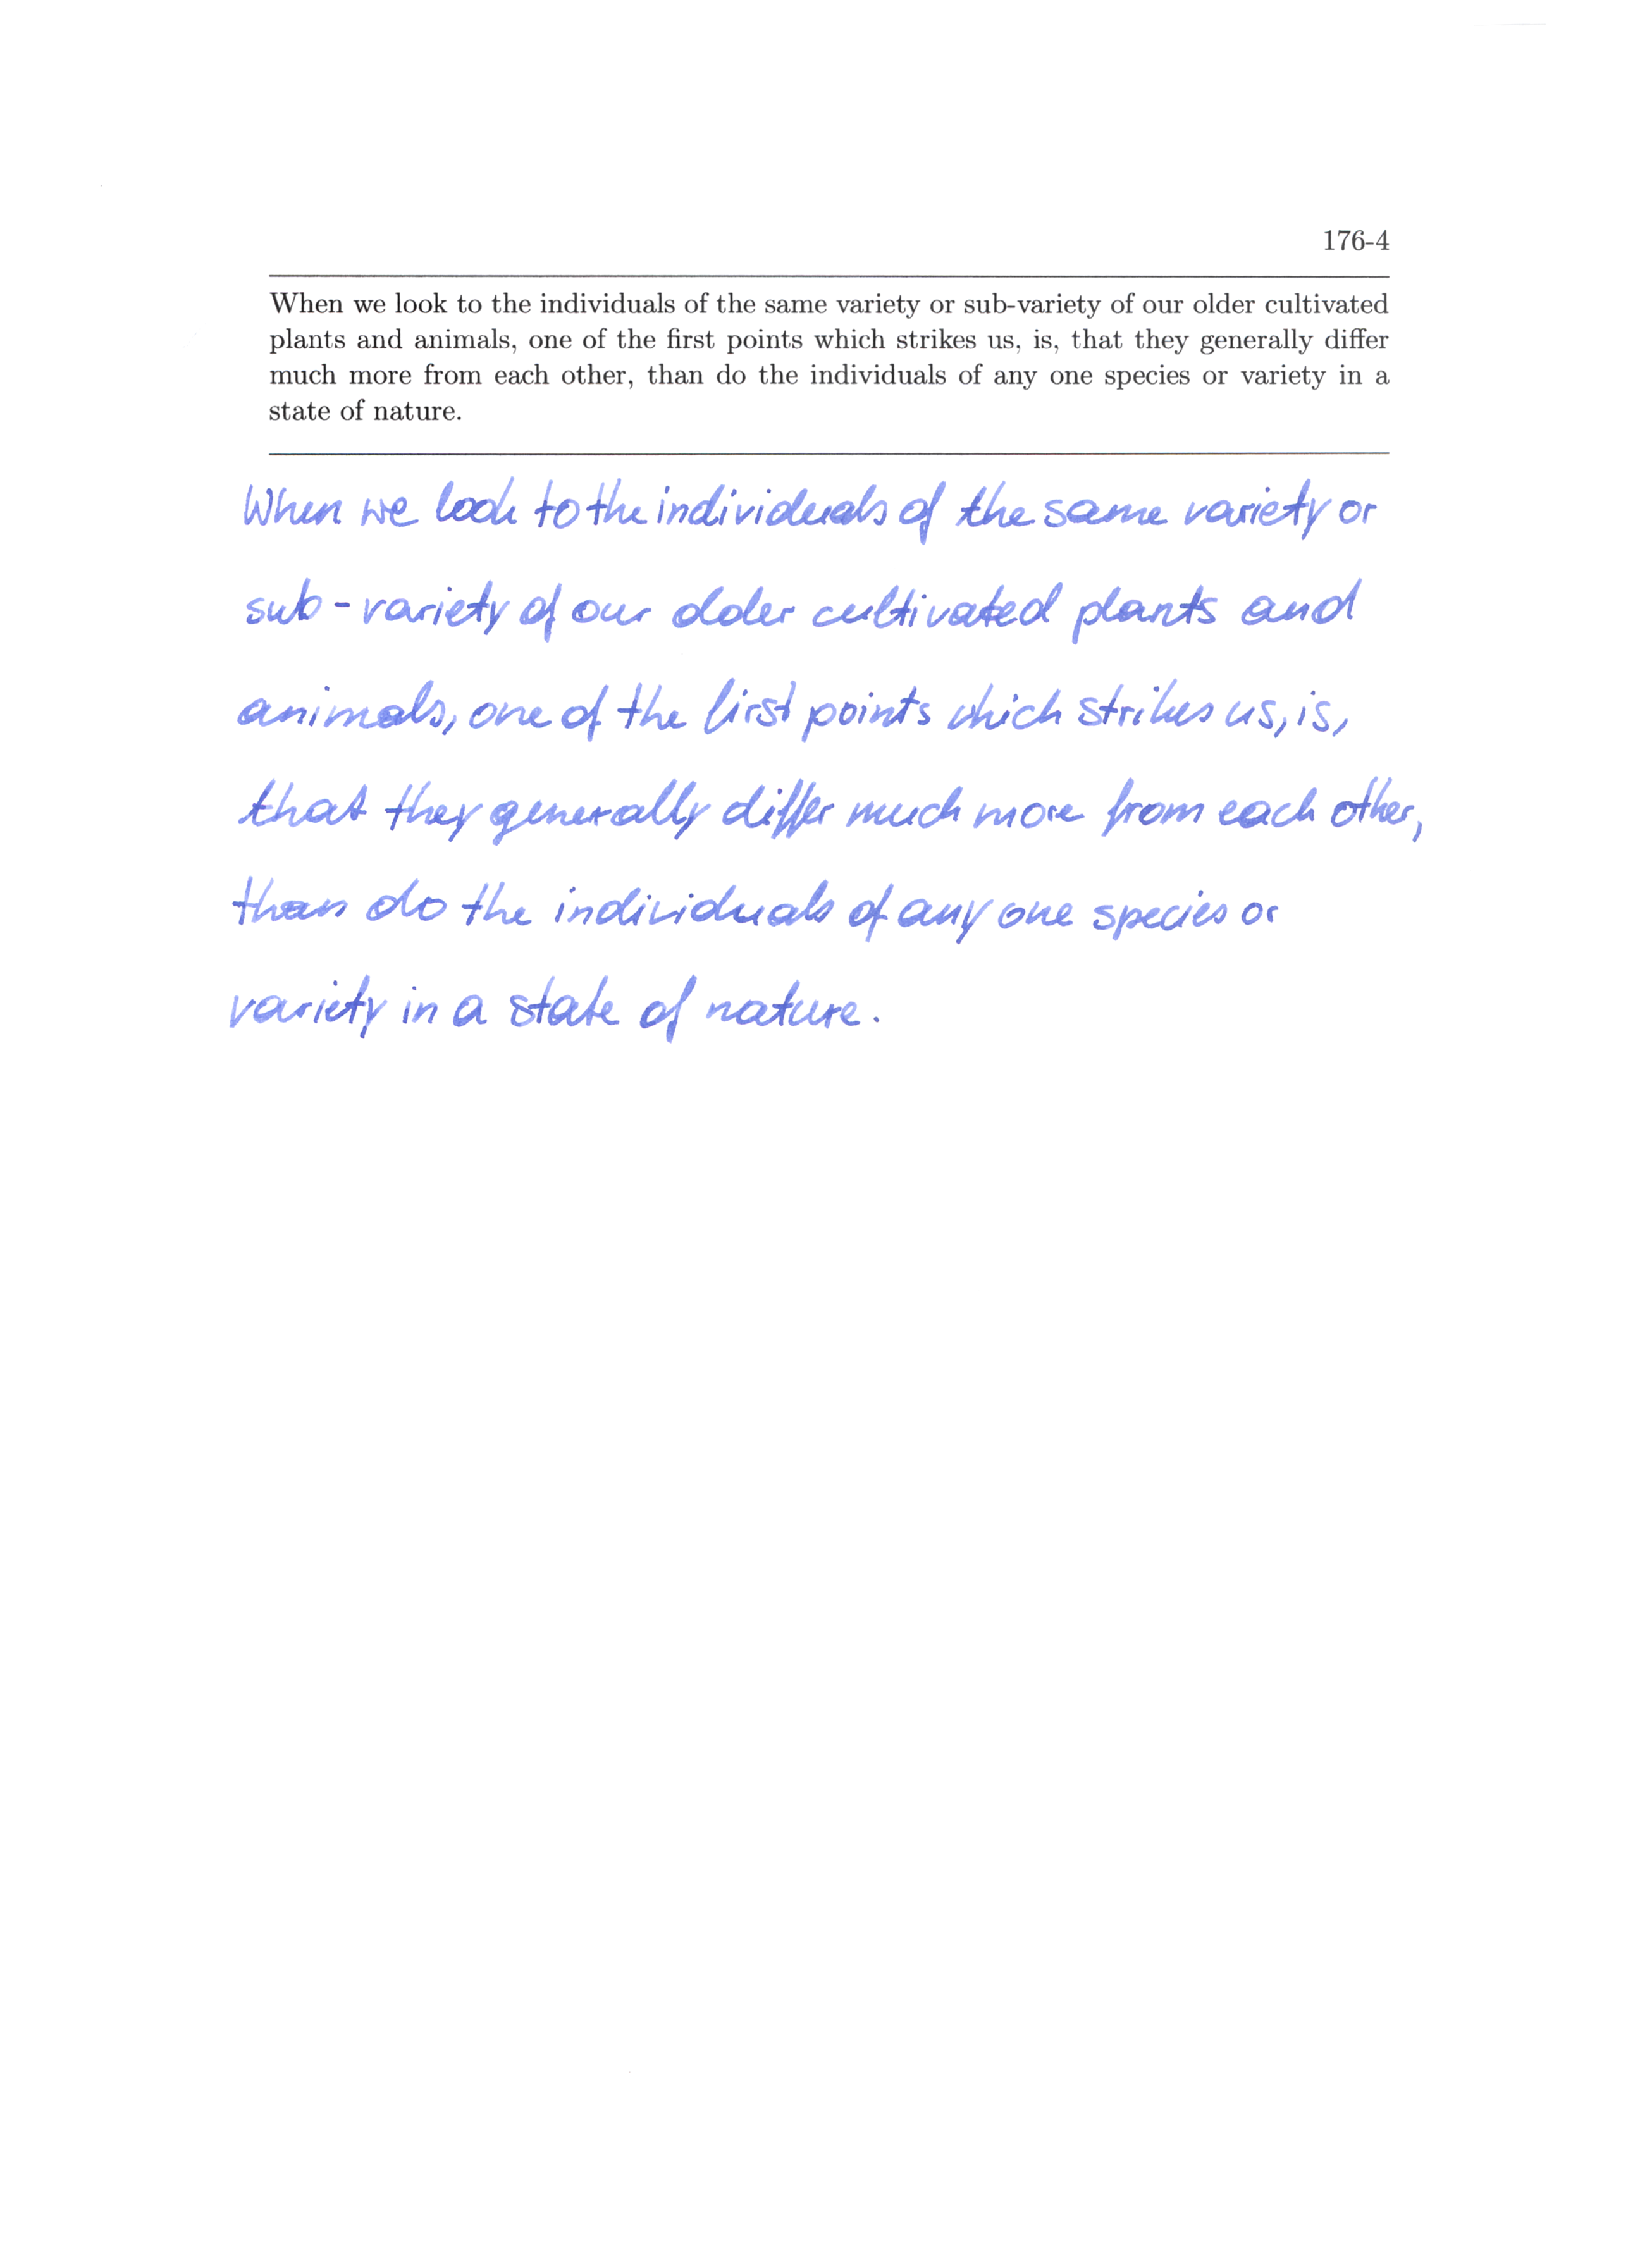 176-4
When we look to the individuals of the same variety or sub-variety of our older cultivated
plants and animals, one of the first points which strikes us, is, that they generally differ
much more from each other, than do the individuals of any one species or variety in a
state of nature.
When we look to the individuals of the same variety or
sub-variety of our older cultivated plants and
animals, one of the first points which strikes us, is,
that they generally differ much more from each other,
than do the individuals of any one species or
variety in a state of nature.